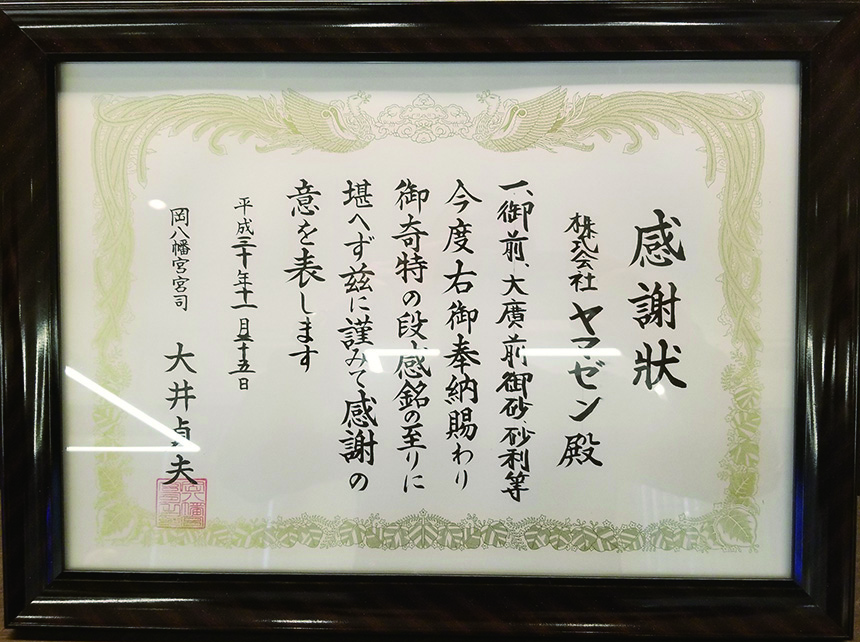 感謝狀
株式会社ヤマゼン殿
一、御前、大廣前御砂、砂利等
今度右御奉納賜わり
御奇特の段感銘の至りに
堪へず茲に謹みて感謝の
意を表します
平成三十年十一月二十五日
岡八幡宮宮司 大井貞夫